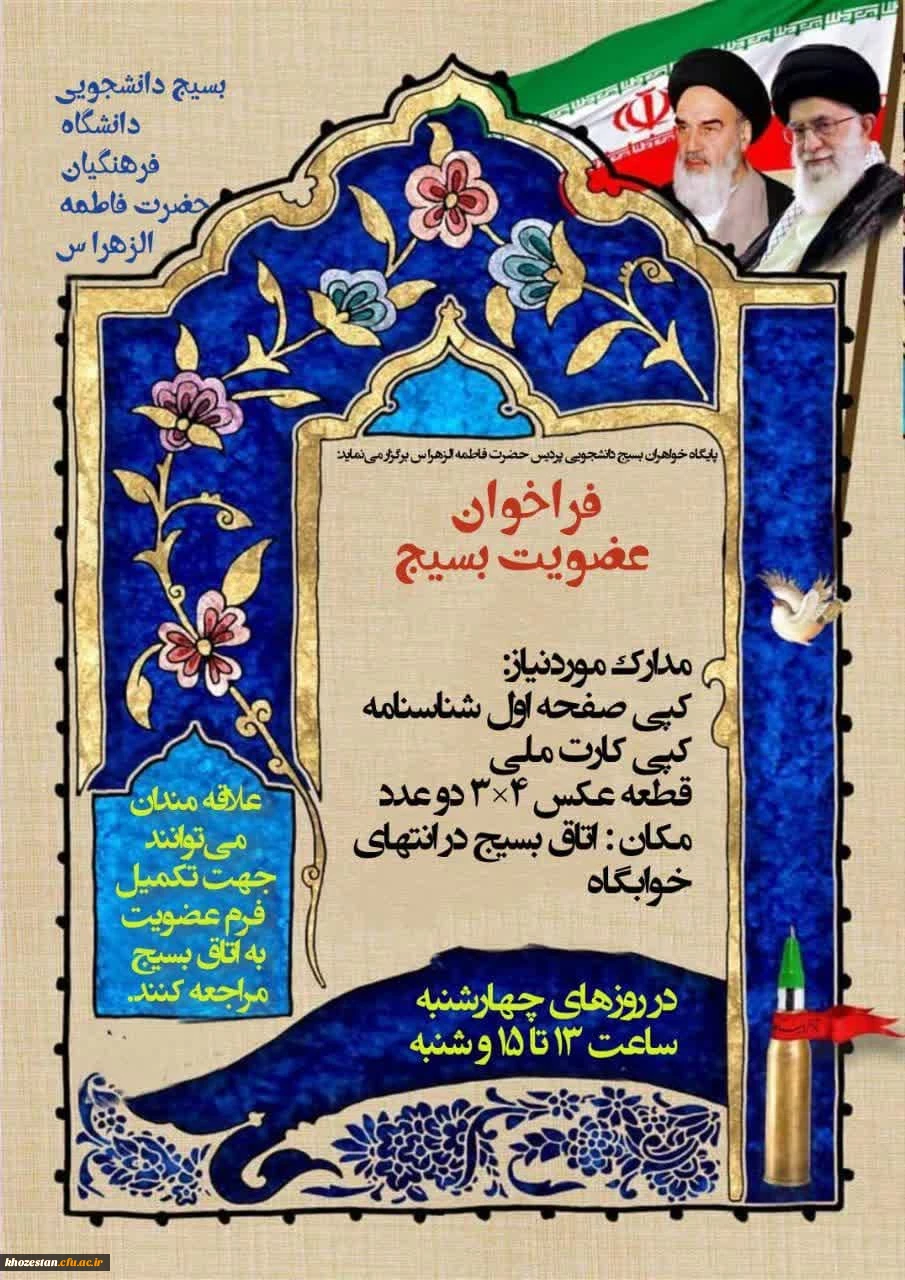 بسیج دانشجویی
دانشگاه
فرهنگیان
حضرت فاطمه
الزهرا س
پایگاه خواهران بسیج دانشجویی پردیس حضرت فاطمه الزهرا س برگزار می‌نماید:
فراخوان
عضویت بسیج
مدارک موردنیاز:
کپی صفحه اول شناسنامه
کپی کارت ملی
قطعه عکس ۴×۳ دو عدد
مکان : اتاق بسیج در انتهای
خوابگاه
علاقه مندان
می‌توانند
جهت تکمیل
فرم عضویت
به اتاق بسیج
مراجعه کنند.
در روزهای چهارشنبه
ساعت ۱۳ تا ۱۵ و شنبه
khozestan.cfu.ac.ir